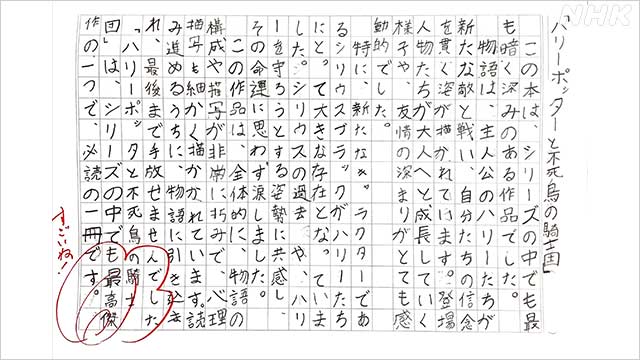 NHK
「ハリーポッターと不死鳥の騎士団」
この本は、シリーズの中でも最
も暗く深みのある作品でした。
物語は、主人公のハリーたちが
新たな敵と戦い、自分たちの信念
を貫く姿が描かれています。登場
人物たちが大人へと成長していく
様子や、友情の深まりがとても感
動的でした。
特に、新たなキャラクターであ
るシリウスブラックがハリーたち
にとって大きな存在となっていま
した。シリウスの過去や、ハリ
ーを守ろうとする姿勢に共感し
その命運に思わず涙しました。
この作品は、全体的に、物語の
構成や描写が非常に巧みで、心理
描写も細かく描かれています。読
み進めるうちに、物語に引き込ま
れ、最後まで手放せませんでした。
『ハリーポッターと不死鳥の騎士
団』は、シリーズの中でも最高傑
作の一つで、必読の一冊です。
すごいね！